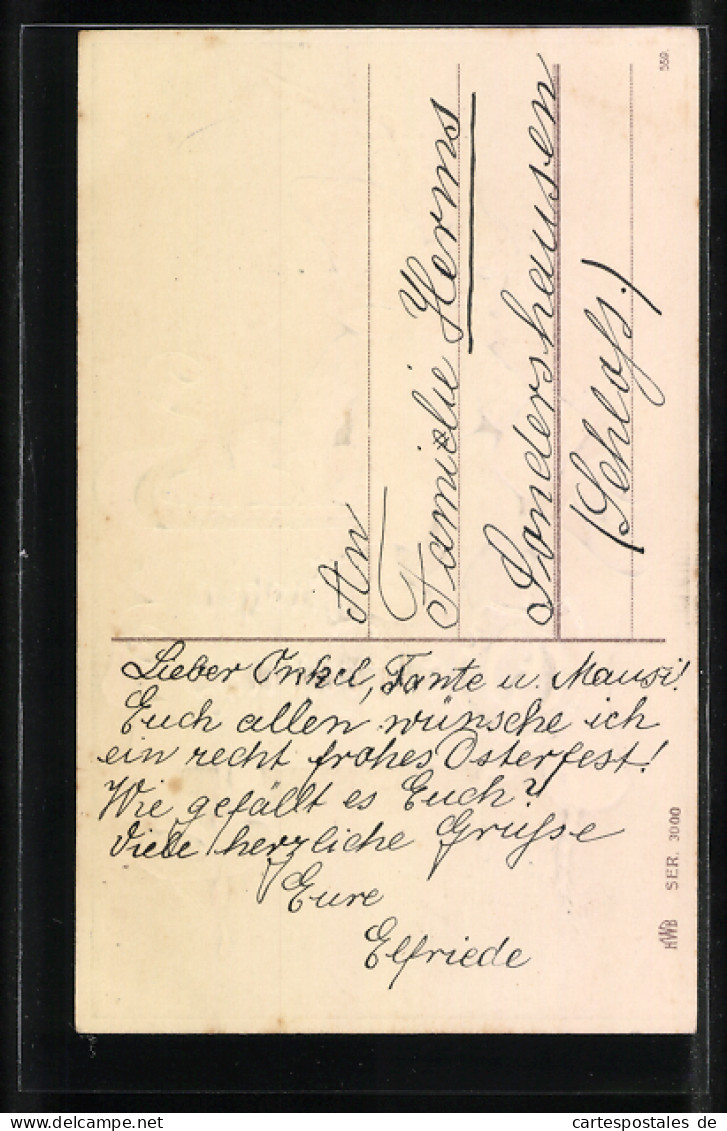 An
Familie Herms
Sondershausen
(Schloß.)
Lieber Onkel, Tante u. Mausi!
Euch allen wünsche ich
ein recht frohes Osterfest!
Wie gefällt es Euch?
Viele herzliche Grüße
Eure
Elfriede
559.
HWB SER. 3000
cartespostales de